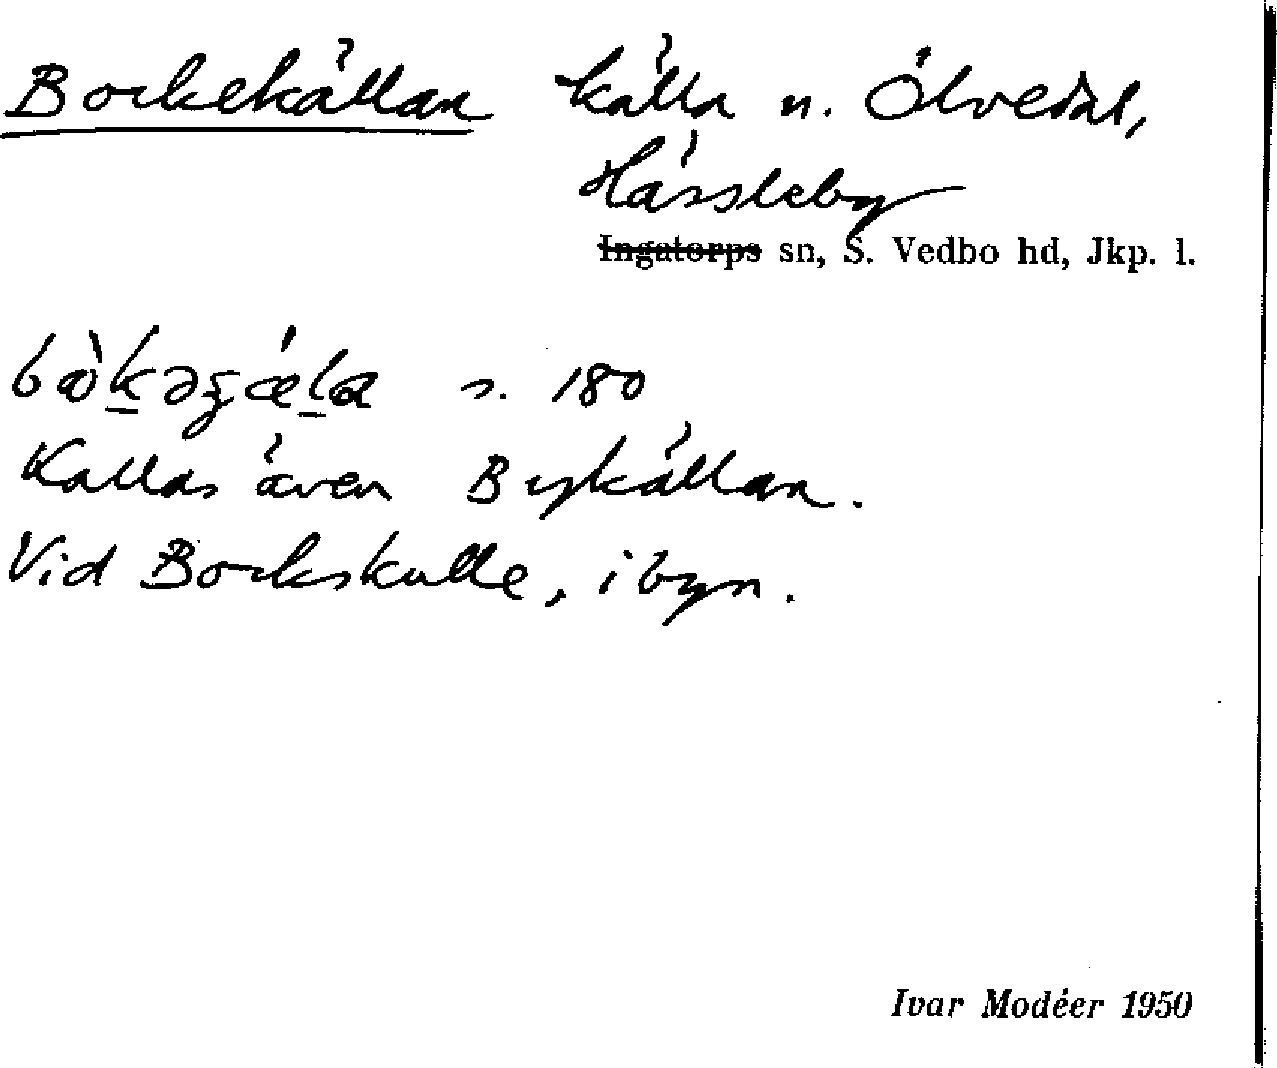 Bockekällan källa n. Ölvedal,
Hässleby
Ingatorps sn, S. Vedbo hd, Jkp. l.
s. 180
Kallas även Bykällan.
Vid Bockskulle, i byn.
Ivar Modéer 1950